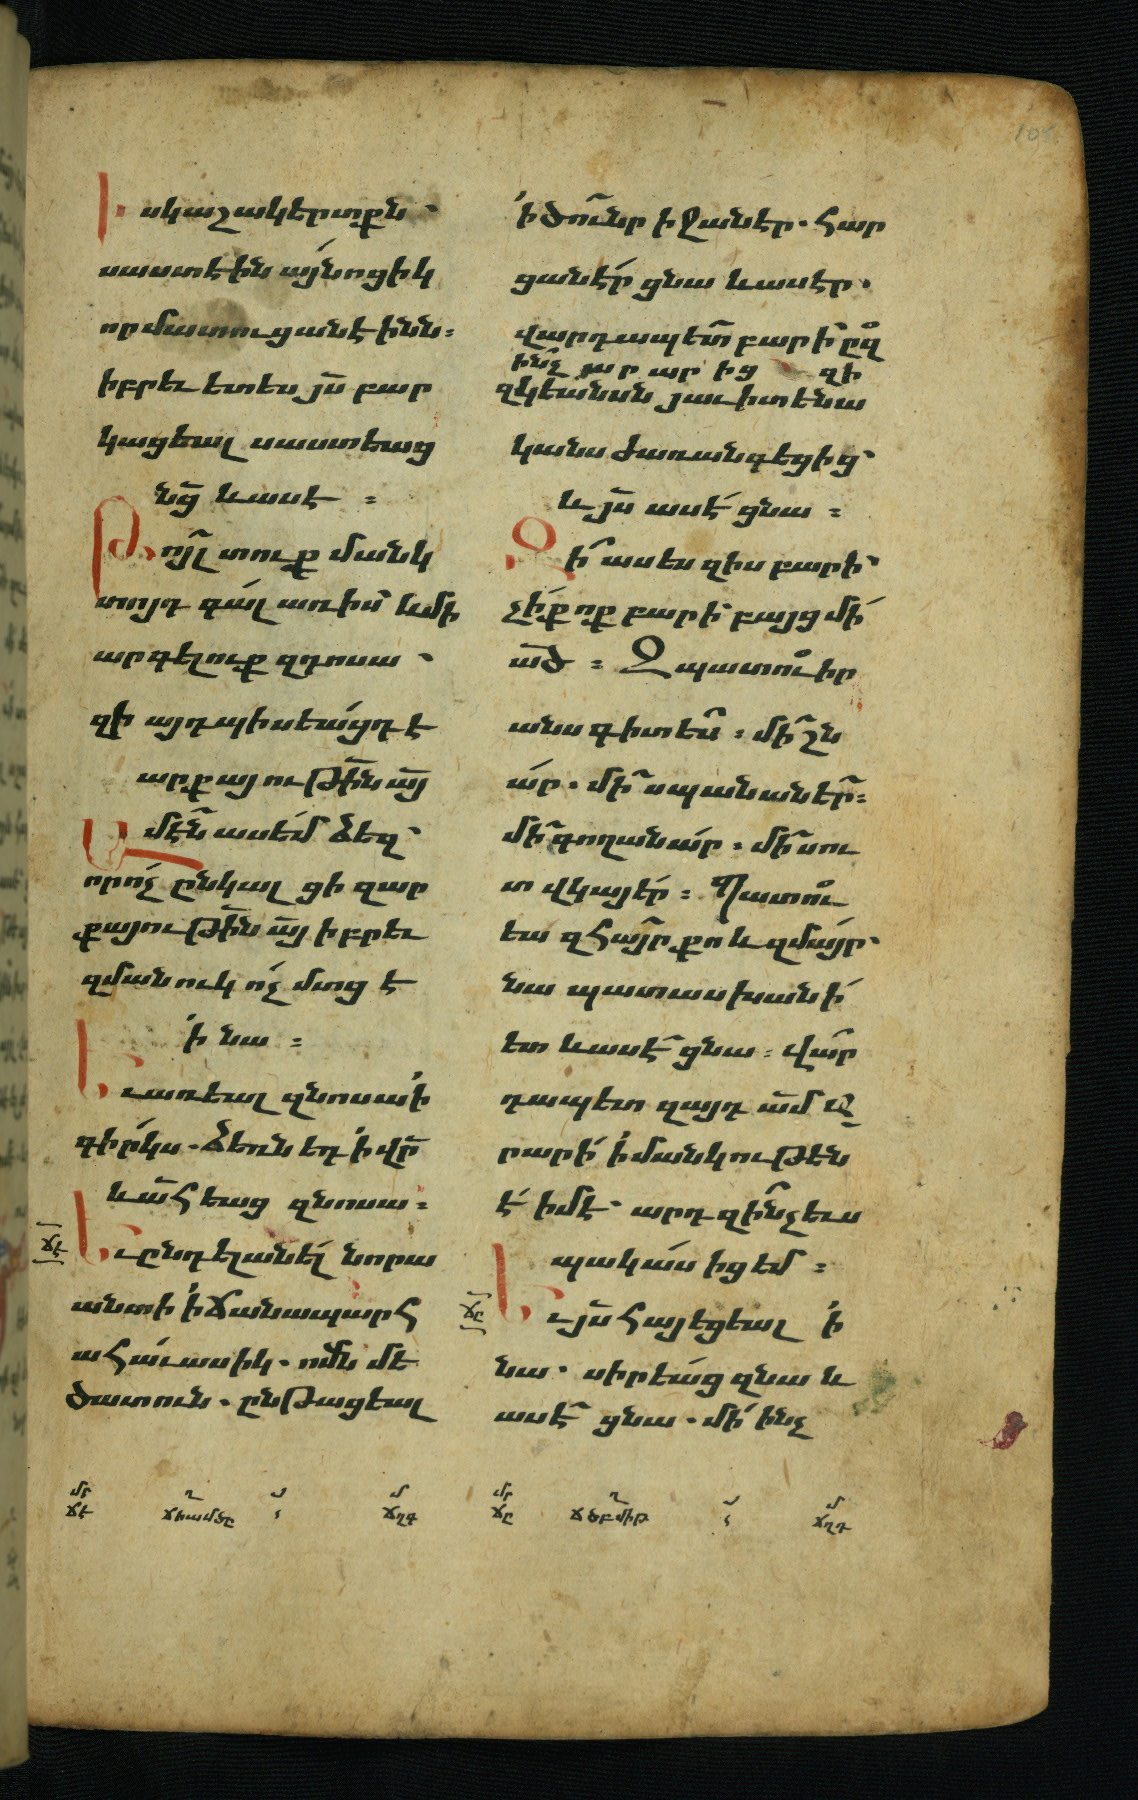 Իսկ աշակերտքն՝
սաստէին այնոցիկ
որ մատուցանէինն։
իբրեւ ետես յս բար
կացեալ սաստեաց
նց և ասէ ։
Թոյլ տուք մանկ
տոյդ գալ առ իս և մի
արգելուք զդոսա՝
զի այդպիսեացդ է
արքայութին այ
Ամէն ասեմ ձեզ՝
որ ոչ ընկալցի զար
քայութին այ իբրեւ
զմանուկ ոչ մտցէ
ի նա ։
Եւ առեալ զնոսա ի
գիրկս. ձեռն եդ ի վր
և աՀեաց զնոսա։
ՃԷ
Եւ ընդ ելանել նորա
անտի ի ճանապարՀ
աՀաւասիկ. ոմն մե
ծատուն. ընթացեալ
ի ծունր իջաներ. Հար
ցանէր ցնա և ասէր.
վարդապետ բարի՝ զի
ինչ արարից զի
զկեանսն յաւիտենա
կանս ժառանգեցից՝
և յս ասէ ցնա ։
Զի ասես զիս բարի՝
չիք ոք բարի՝ բայց մի
ած ։ Զպատուիր
անս գիտես ։ մի շն
ար. մի սպանաներ։
մի գողանար ։ մի սու
տ վկայեր ։ Պատու
եա զՀայր քո և զմայր՝
նա պատասխանի
ետ և ասէ ցնա ։ Վար
դապետ զայդ ամ ա
րարի ի մանկութեն
է իմէ՝ արդ զինչ եւս
պակաս իցեմ ։
ՃԸ
Եւ յս Հայեցեալ ի
նա. սիրեաց զնա և
ասէ ցնա. մի ինչ